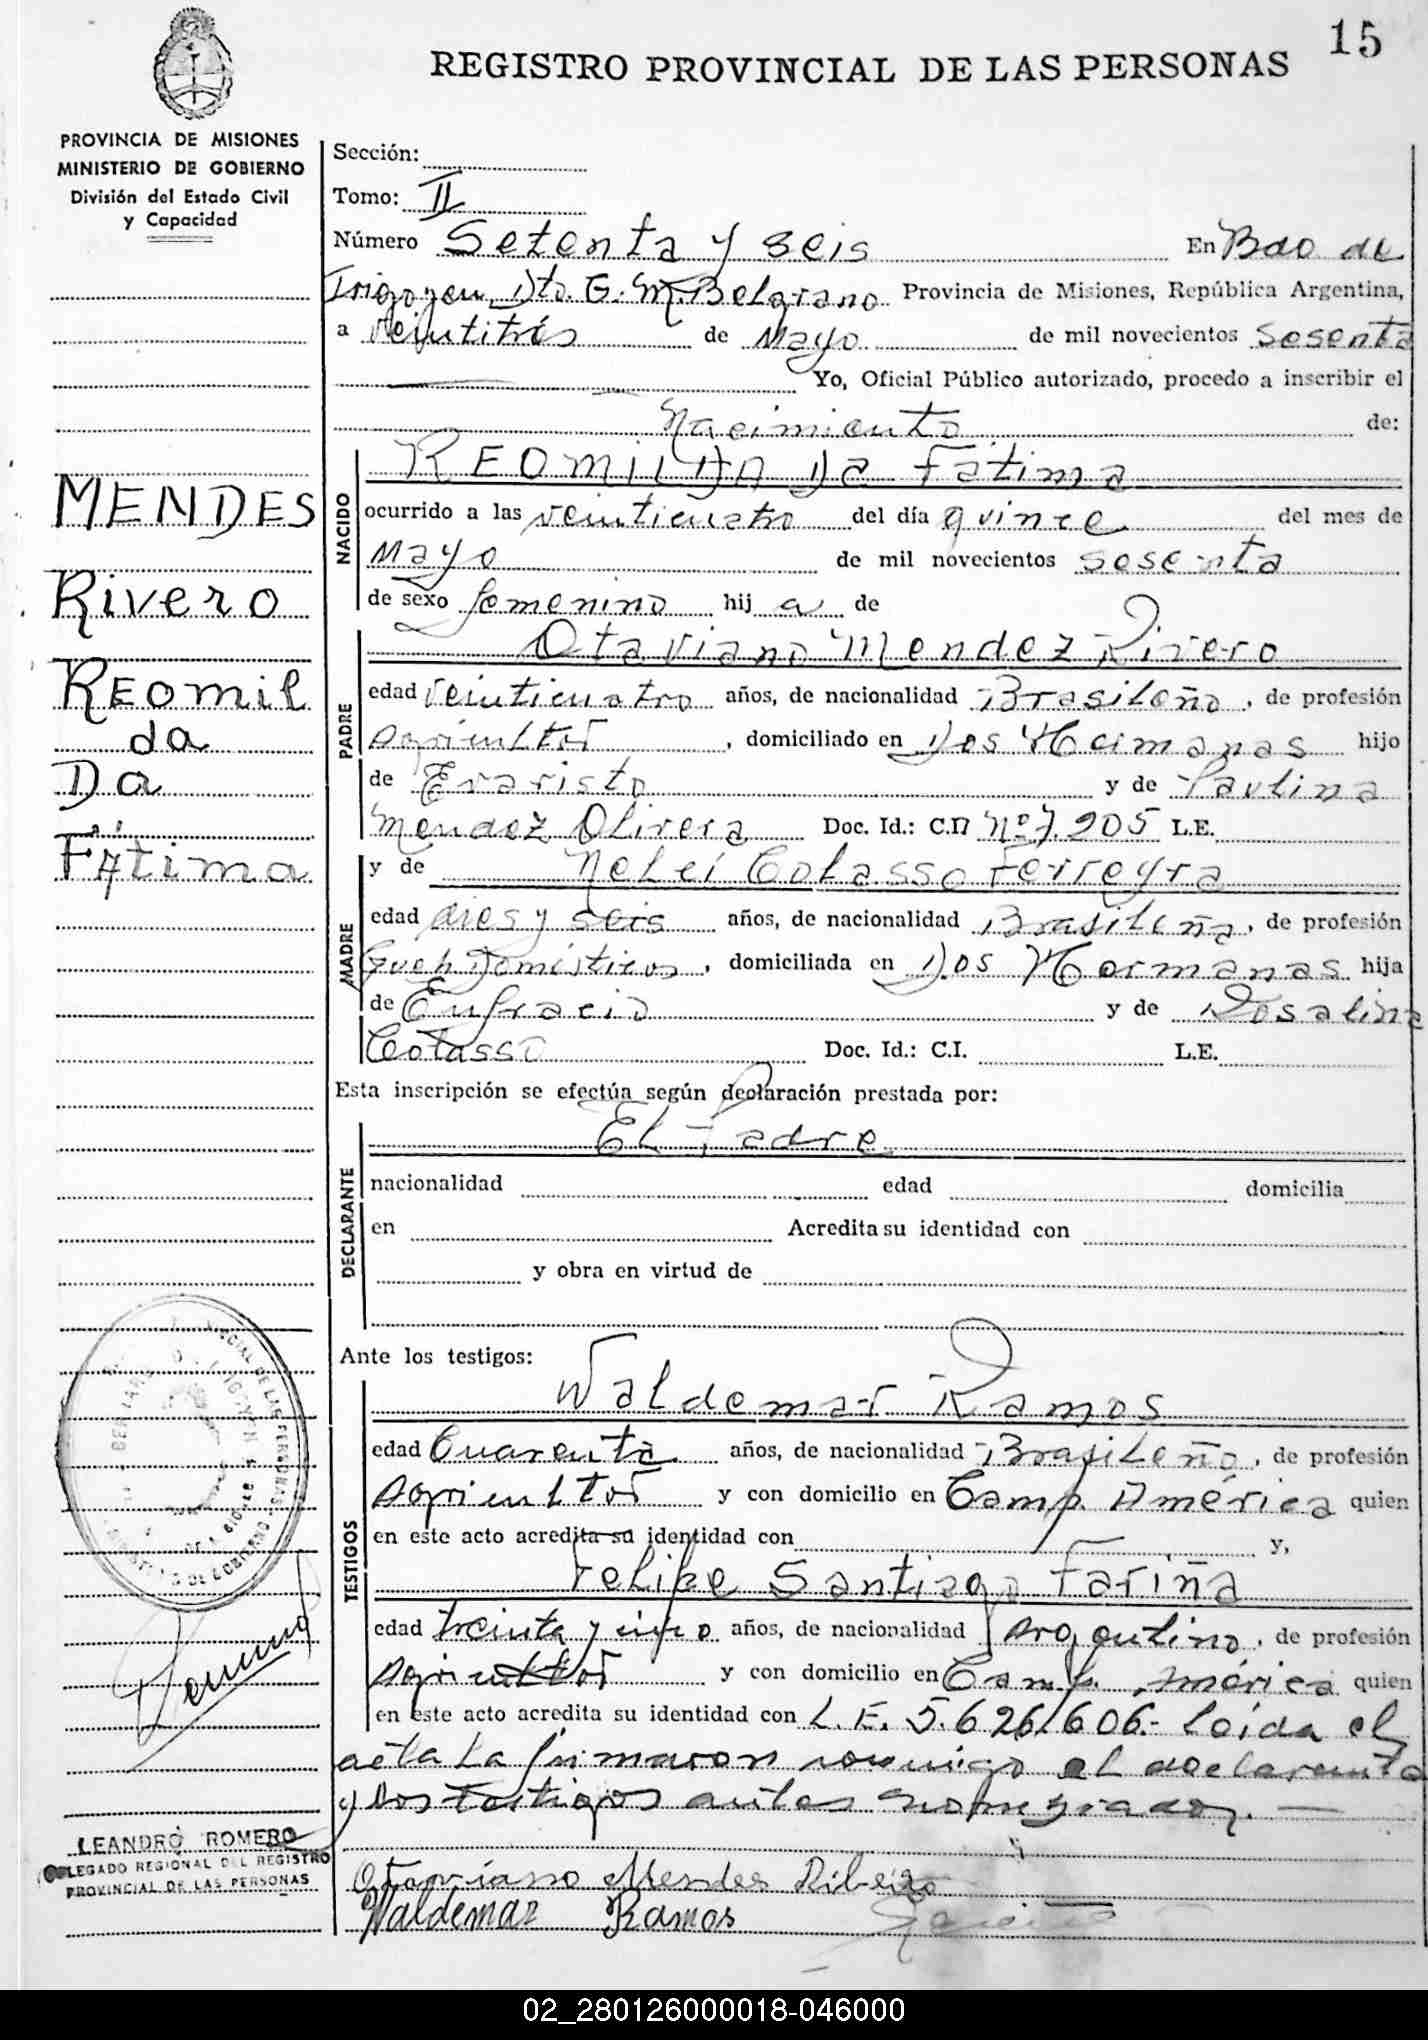 15
REGISTRO PROVINCIAL DE LAS PERSONAS
PROVINCIA DE MISIONES
MINISTERIO DE GOBIERNO
División del Estado Civil
y Capacidad
MENDES
Rivero
REOMIL
da
Da
FÁtima
Sección:
Tomo: II
Número Setenta y seis En Bdo de
Irigoyen, Dto. G. M. Belgrano Provincia de Misiones, República Argentina,
a veintitrés de Mayo de mil novecientos sesenta
Yo, Oficial Público autorizado, procedo a inscribir el
Nacimiento de:
NACIDO
REOMILDA Da Fatima
ocurrido a las veinticuatro del día quince del mes de
Mayo de mil novecientos sesenta
de sexo femenino hij a de
PADRE
Otaviano Mendez Rivero
edad veinticuatro años, de nacionalidad Brasileño, de profesión
Agricultor, domiciliado en Dos Hermanas hijo
de Evaristo y de Paulina
Mendez Olivera Doc. Id.: C.I. Nº 7.205 L.E.
MADRE
y de Nelei Colasso Ferreyra
edad dies y seis años, de nacionalidad Brasileña, de profesión
Queh. Domésticos, domiciliada en Dos Hermanas hija
de Eufracio y de Rosalina
Colasso Doc. Id.: C.I. L.E.
Esta inscripción se efectúa según declaración prestada por:
DECLARANTE
El Padre
nacionalidad edad domicilia
en Acredita su identidad con
y obra en virtud de
Ante los testigos:
TESTIGOS
Waldemar Ramos
edad Cuarenta años, de nacionalidad Brasileño, de profesión
Agricultor y con domicilio en Camp. América quien
en este acto acredita su identidad con y,
Felipe Santiago Fariña
edad treinta y cinco años, de nacionalidad Argentino, de profesión
Agricultor y con domicilio en Camp. América quien
en este acto acredita su identidad con L.E. 5.626.606.- Leída el
acta la firmaron conmigo el declarante
y los testigos antes nombrados. —
Otaviano Mendes Ribeiro
Waldemar Ramos
LEANDRO ROMERO
DELEGADO REGIONAL DEL REGISTRO
PROVINCIAL DE LAS PERSONAS
02_280126000018-046000